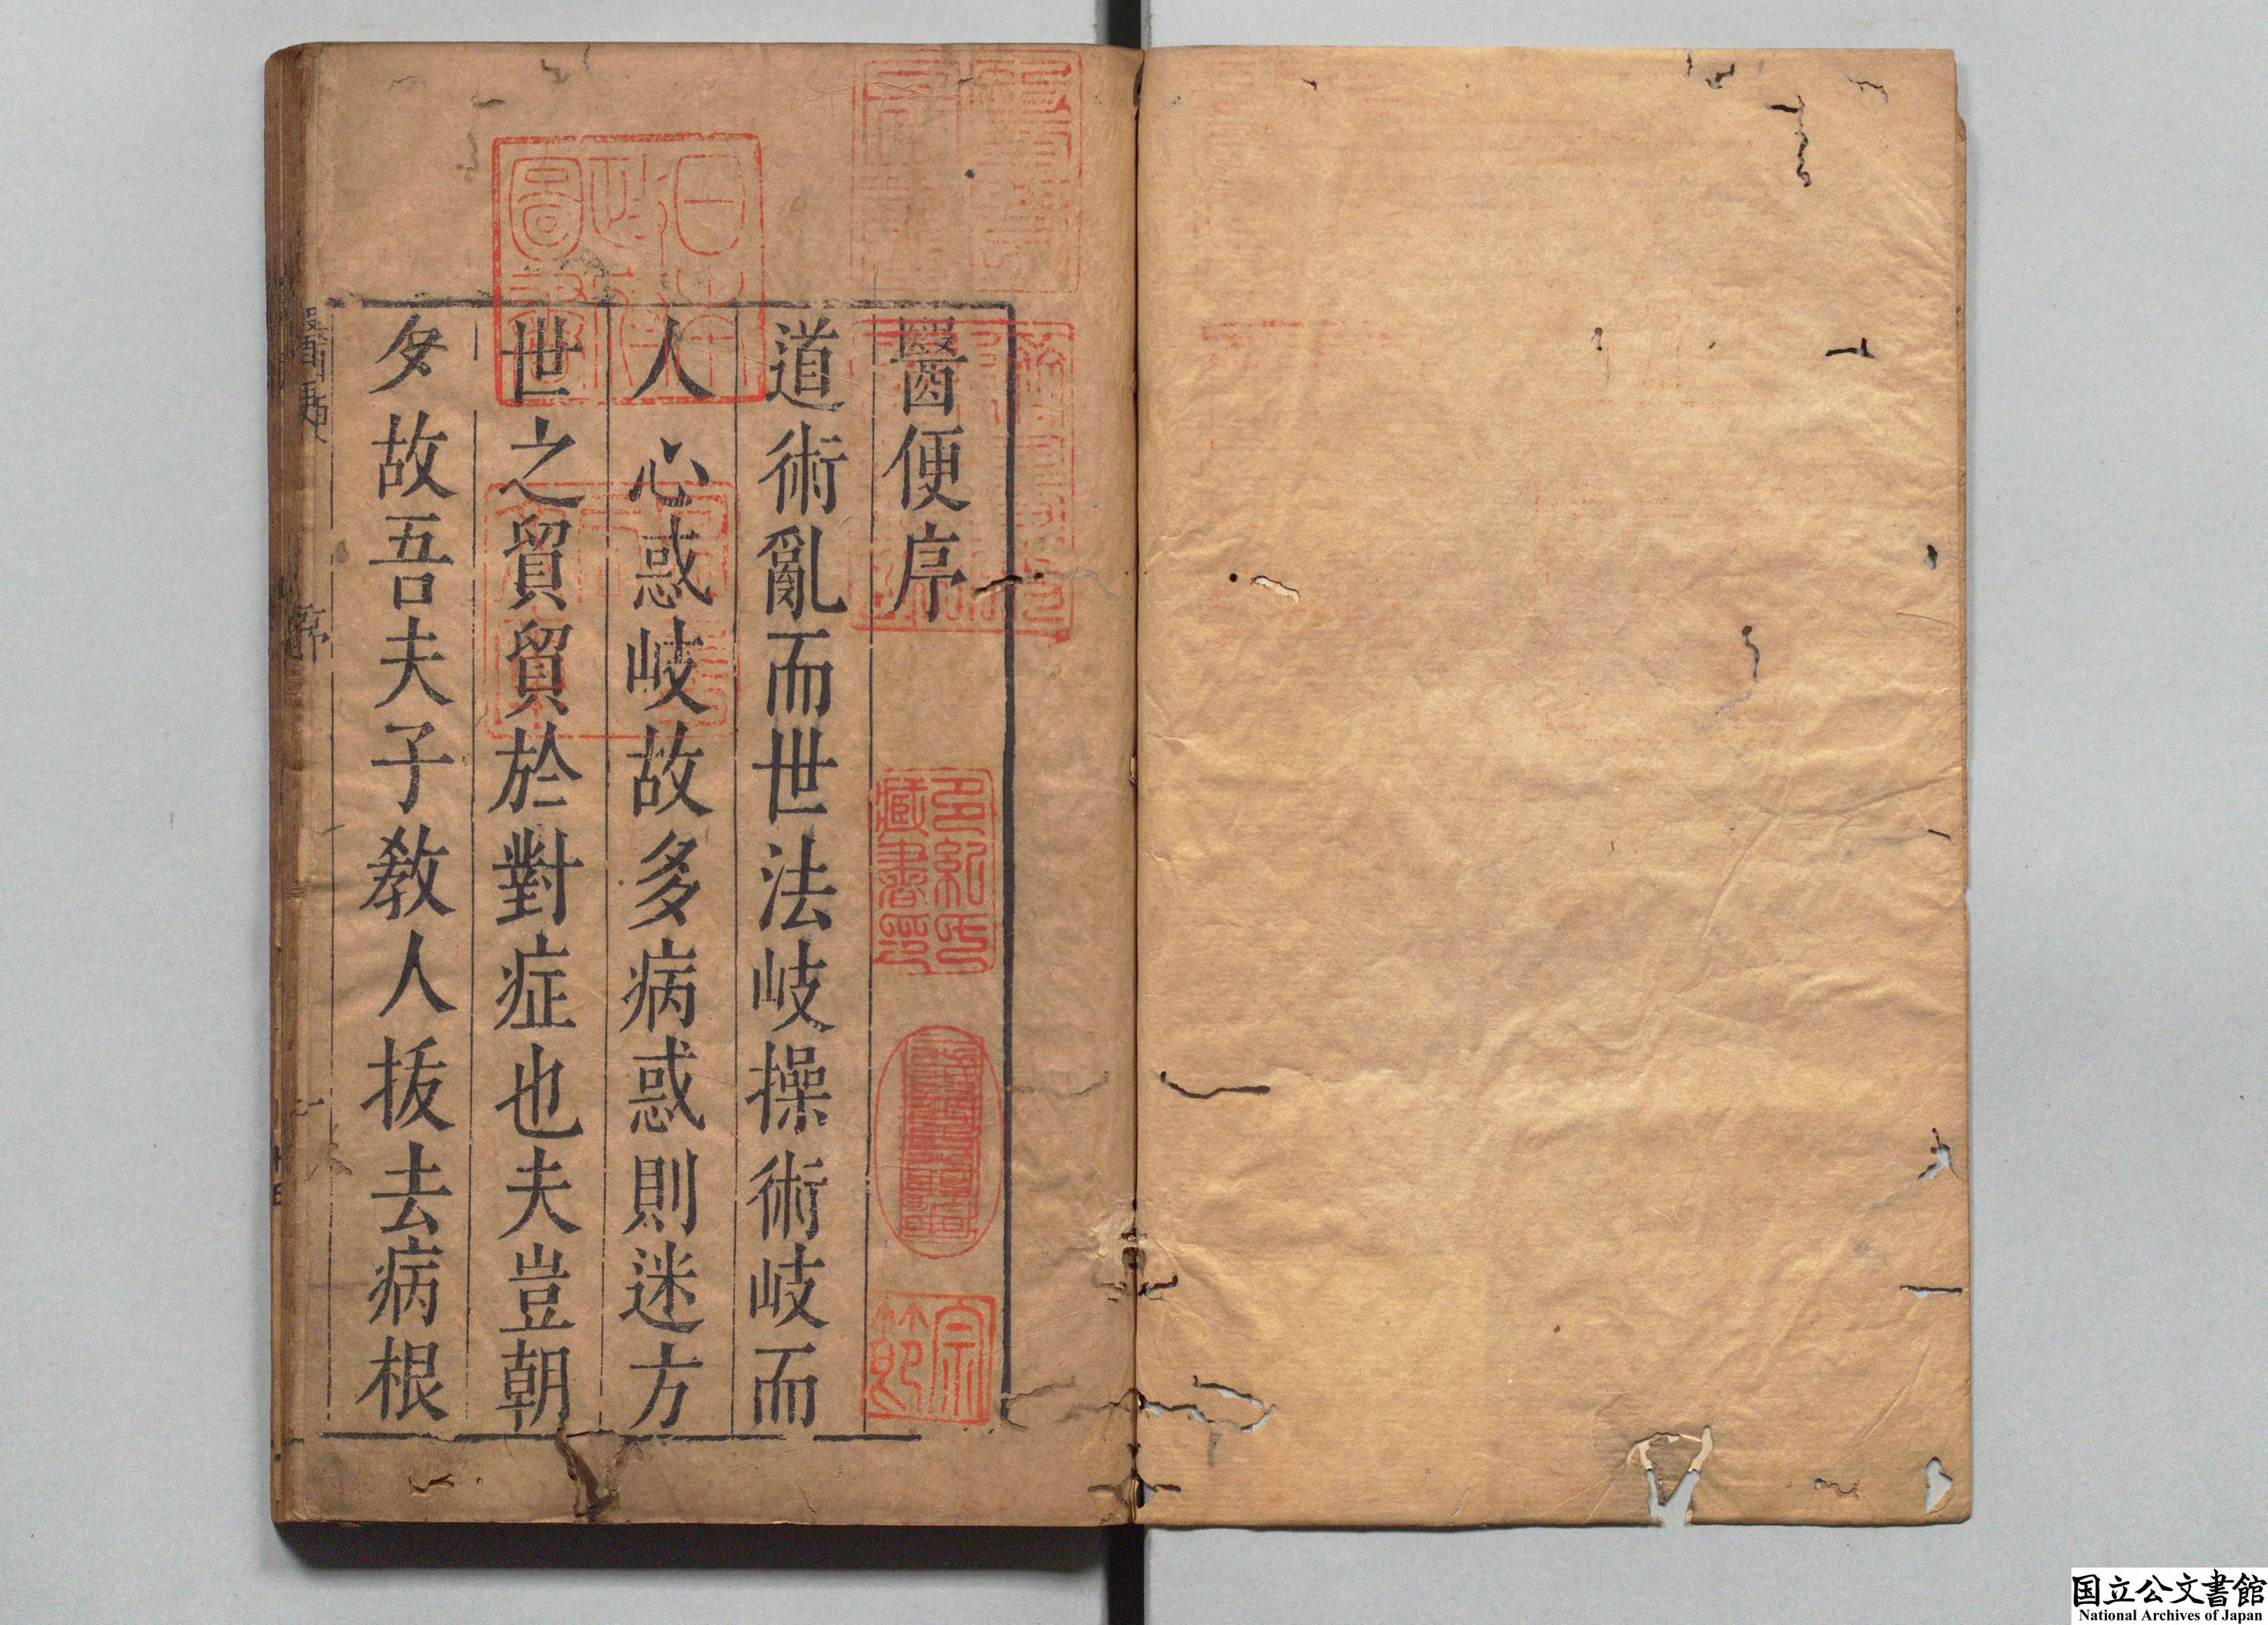 醫便序
道術亂而世法岐操術岐而
人心惑岐故多病惑則迷方
世之貿貿於對症也夫豈朝
夕故吾夫子教人拔去病根
日本政府圖書
多紀氏藏書印
宗節
序
国立公文書館
National Archives of Japan